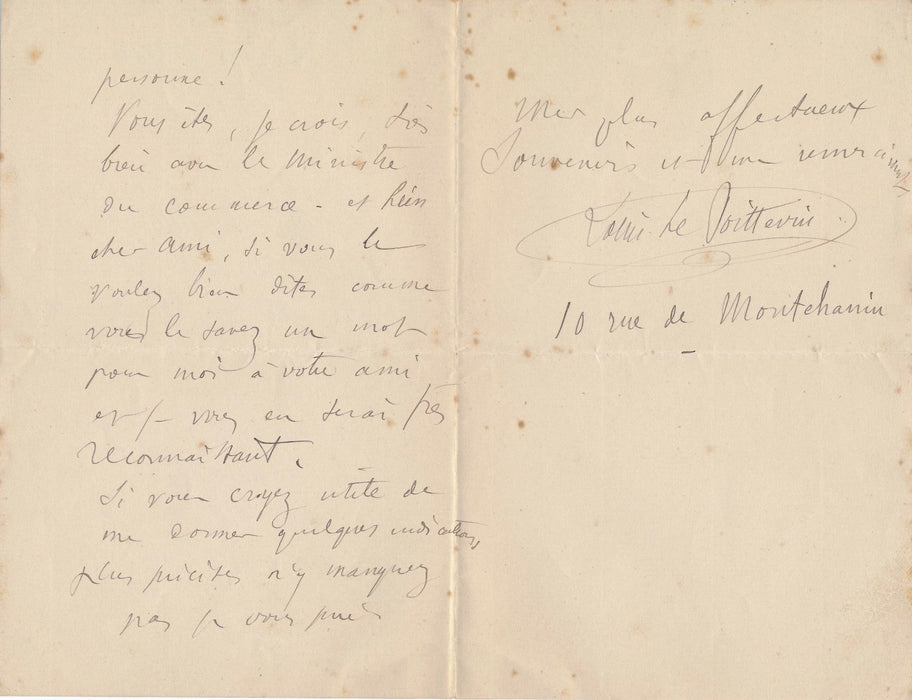 personne !
Vous êtes, je crois, très
bien avec le Ministre
du commerce - et bien
cher ami, si vous le
voulez bien dites comme
vous le savez un mot
pour moi à votre ami
et je vous en serai très
reconnaissant.
Si vous croyez utile de
me donner quelques indications
plus précises n'y manquez
pas je vous prie
Mes plus affectueux
Souvenirs et mes remerciements
Louis Le Poittevin
10 rue de Montchanin